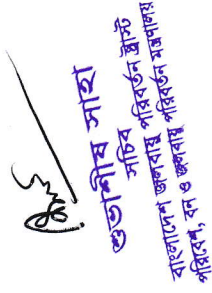 শুভাশীষ সাহা
সচিব
বাংলাদেশ জলবায়ু পরিবর্তন ট্রাস্ট
পরিবেশ, বন ও জলবায়ু পরিবর্তন মন্ত্রণালয়